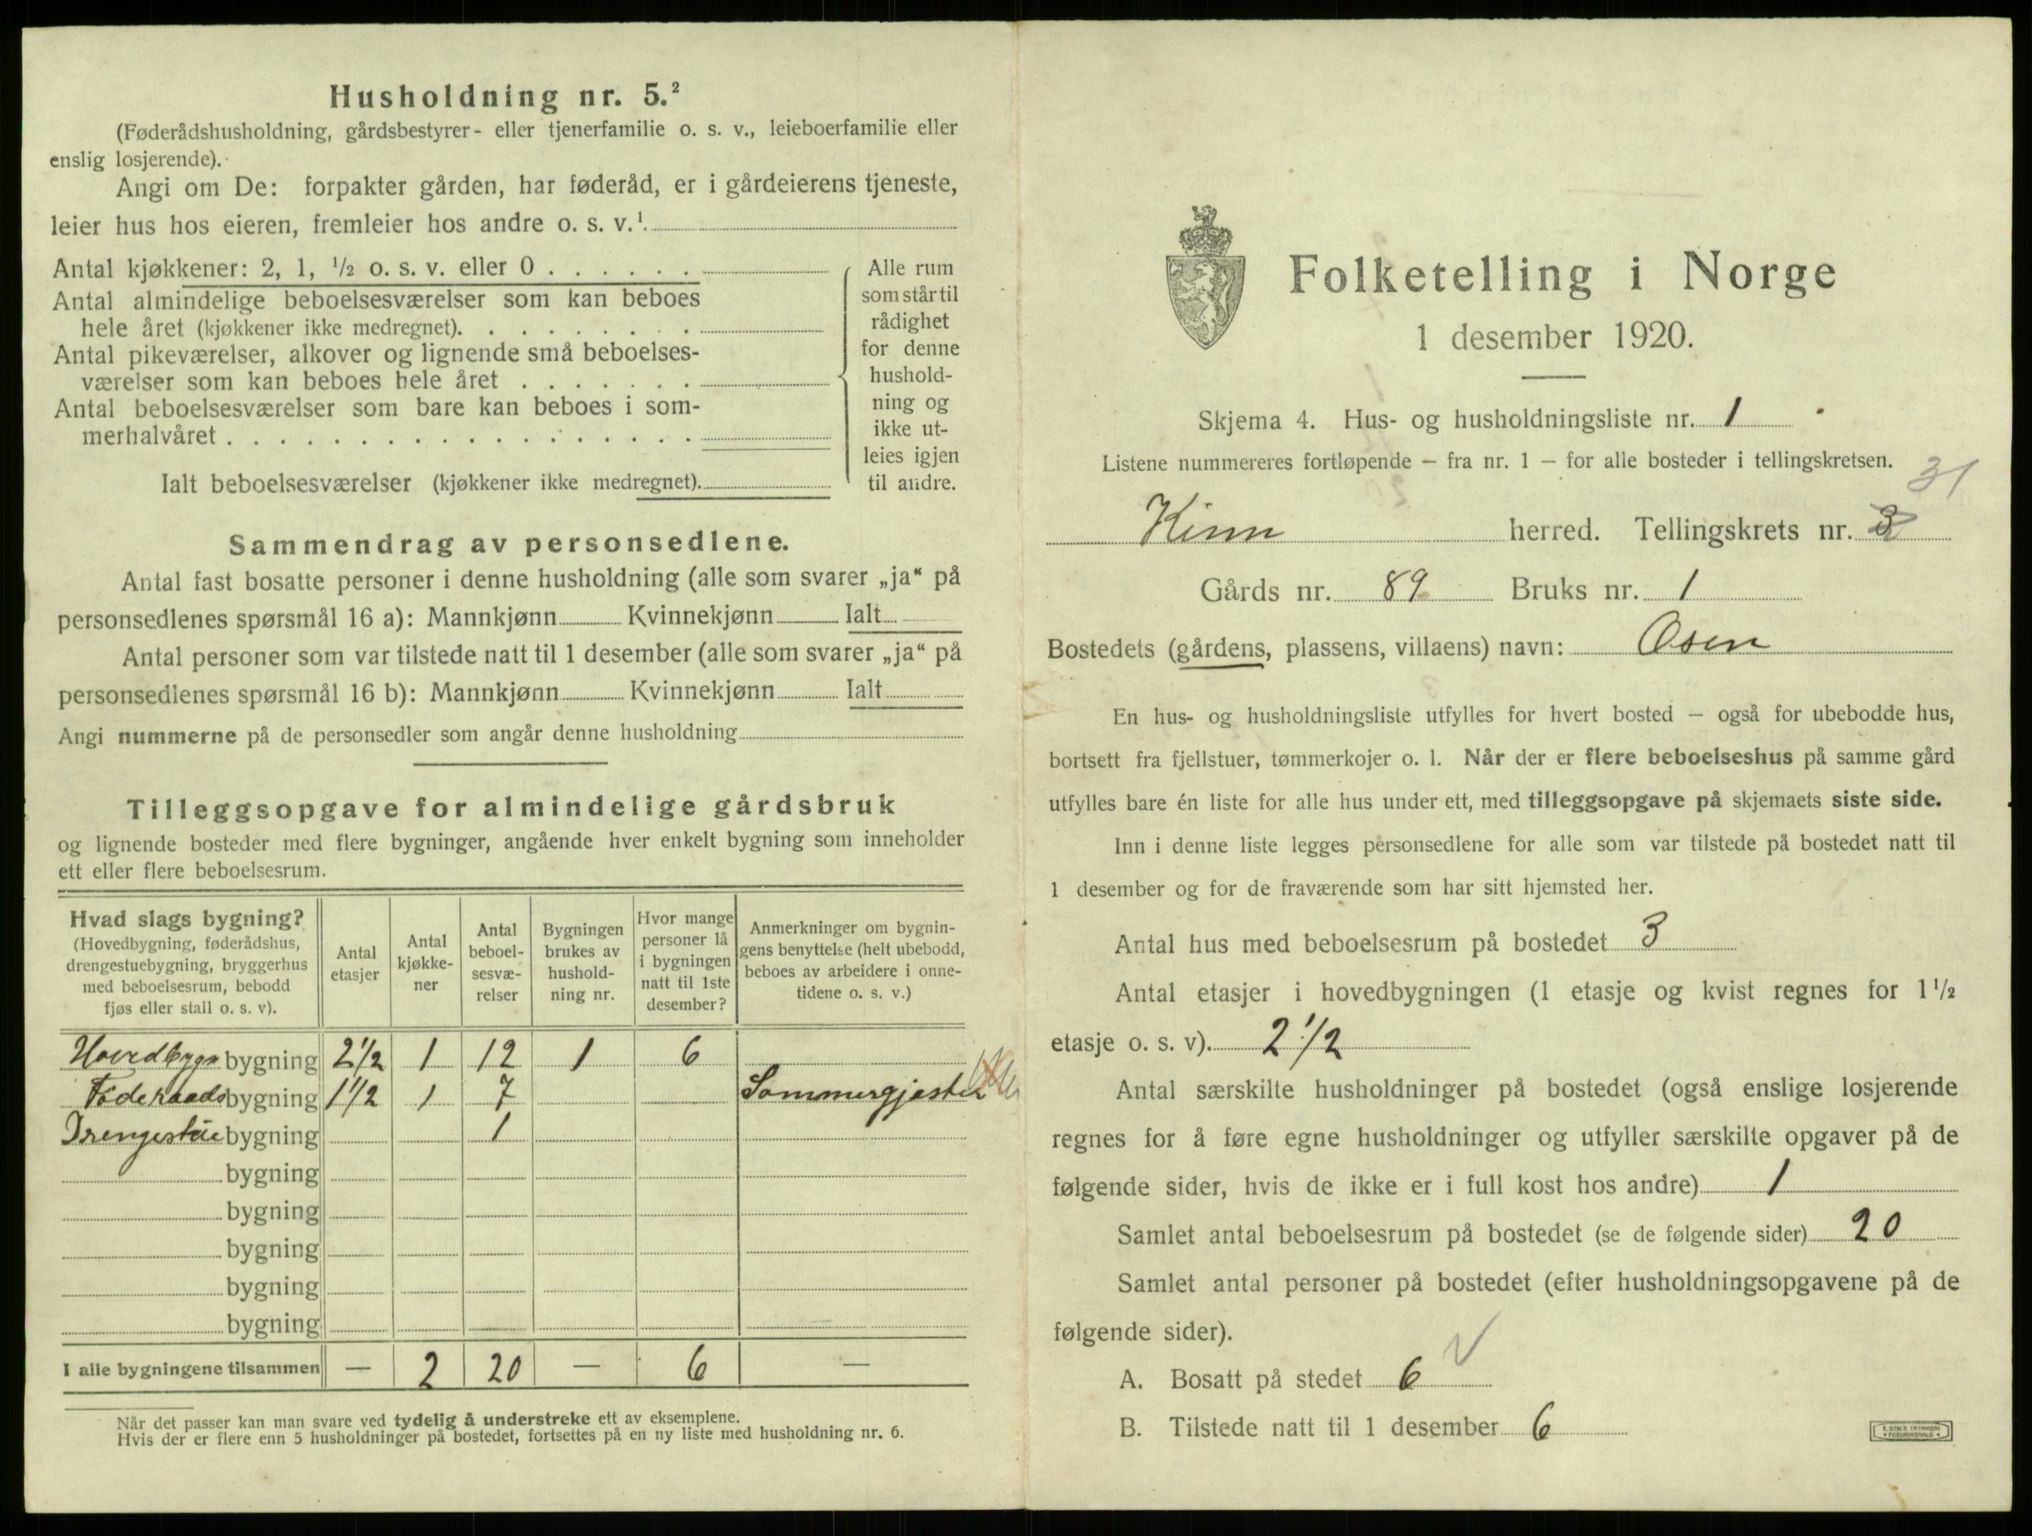 Husholdning nr. 5.²
(Føderådshusholdning, gårdsbestyrer- eller tjenerfamilie o. s. v., leieboerfamilie eller
enslig losjerende).
Angi om De: forpakter gården, har føderåd, er i gårdeierens tjeneste,
leier hus hos eieren, fremleier hos andre o. s. v.¹
Antal kjøkkener: 2, 1, ½ o. s. v. eller 0 . . . . . .
Antal almindelige beboelsesværelser som kan beboes
hele året (kjøkkener ikke medregnet). . . . . . . . .
Antal pikeværelser, alkover og lignende små beboelses-
værelser som kan beboes hele året . . . . . . .
Antal beboelsesværelser som bare kan beboes i som-
merhalvåret . . . . . . . . . . . . . . . . . .
Ialt beboelsesværelser (kjøkkener ikke medregnet).
Alle rum
som står til
rådighet
for denne
hushold-
ning og
ikke ut-
leies igjen
til andre.
Sammendrag av personsedlene.
Antal fast bosatte personer i denne husholdning (alle som svarer „ja“ på
personsedlenes spørsmål 16 a): Mannkjønn Kvinnekjønn Ialt
Antal personer som var tilstede natt til 1 desember (alle som svarer „ja“ på
personsedlenes spørsmål 16 b): Mannkjønn Kvinnekjønn Ialt
Angi nummerne på de personsedler som angår denne husholdning
Tilleggsopgave for almindelige gårdsbruk
og lignende bosteder med flere bygninger, angående hver enkelt bygning som inneholder
ett eller flere beboelsesrum.
Hvad slags bygning?
(Hovedbygning, føderådshus,
drengestuebygning, bryggerhus
med beboelsesrum, bebodd
fjøs eller stall o. s. v).
Antal
etasjer
Antal
kjøkke-
ner
Antal
beboel-
sesvæ-
relser
Bygningen
brukes av
hushold-
ning nr.
Hvor mange
personer lå
i bygningen
natt til 1ste
desember?
Anmerkninger om bygnin-
gens benyttelse (helt ubebodd,
beboes av arbeidere i onne-
tidene o. s. v.)
Hovedbygn bygning 2 1/2 1 12 1 6
Föderaads bygning 1 1/2 1 7 Sommergjester
Drengestue bygning 1
bygning
bygning
bygning
bygning
bygning
I alle bygningene tilsammen — 2 20 — 6 —
Når det passer kan man svare ved tydelig å understreke ett av eksemplene.
Hvis der er flere enn 5 husholdninger på bostedet, fortsettes på en ny liste med husholdning nr. 6.
Folketelling i Norge
1 desember 1920.
Skjema 4. Hus- og husholdningsliste nr. 1
Listene nummereres fortløpende – fra nr. 1 – for alle bosteder i tellingskretsen.
31
Kinn herred. Tellingskrets nr. 3
Gårds nr. 89 Bruks nr. 1
Bostedets (gårdens, plassens, villaens) navn: Osen
En hus- og husholdningsliste utfylles for hvert bosted – også for ubebodde hus,
bortsett fra fjellstuer, tømmerkojer o. l. Når der er flere beboelseshus på samme gård
utfylles bare én liste for alle hus under ett, med tilleggsopgave på skjemaets siste side.
Inn i denne liste legges personsedlene for alle som var tilstede på bostedet natt til
1 desember og for de fraværende som har sitt hjemsted her.
Antal hus med beboelsesrum på bostedet 3
Antal etasjer i hovedbygningen (1 etasje og kvist regnes for 1½
etasje o. s. v). 2 1/2
Antal særskilte husholdninger på bostedet (også enslige losjerende
regnes for å føre egne husholdninger og utfyller særskilte opgaver på de
følgende sider, hvis de ikke er i full kost hos andre) 1
Samlet antal beboelsesrum på bostedet (se de følgende sider) 20
Samlet antal personer på bostedet (efter husholdningsopgavene på de
følgende sider).
A. Bosatt på stedet 6
B. Tilstede natt til 1 desember 6